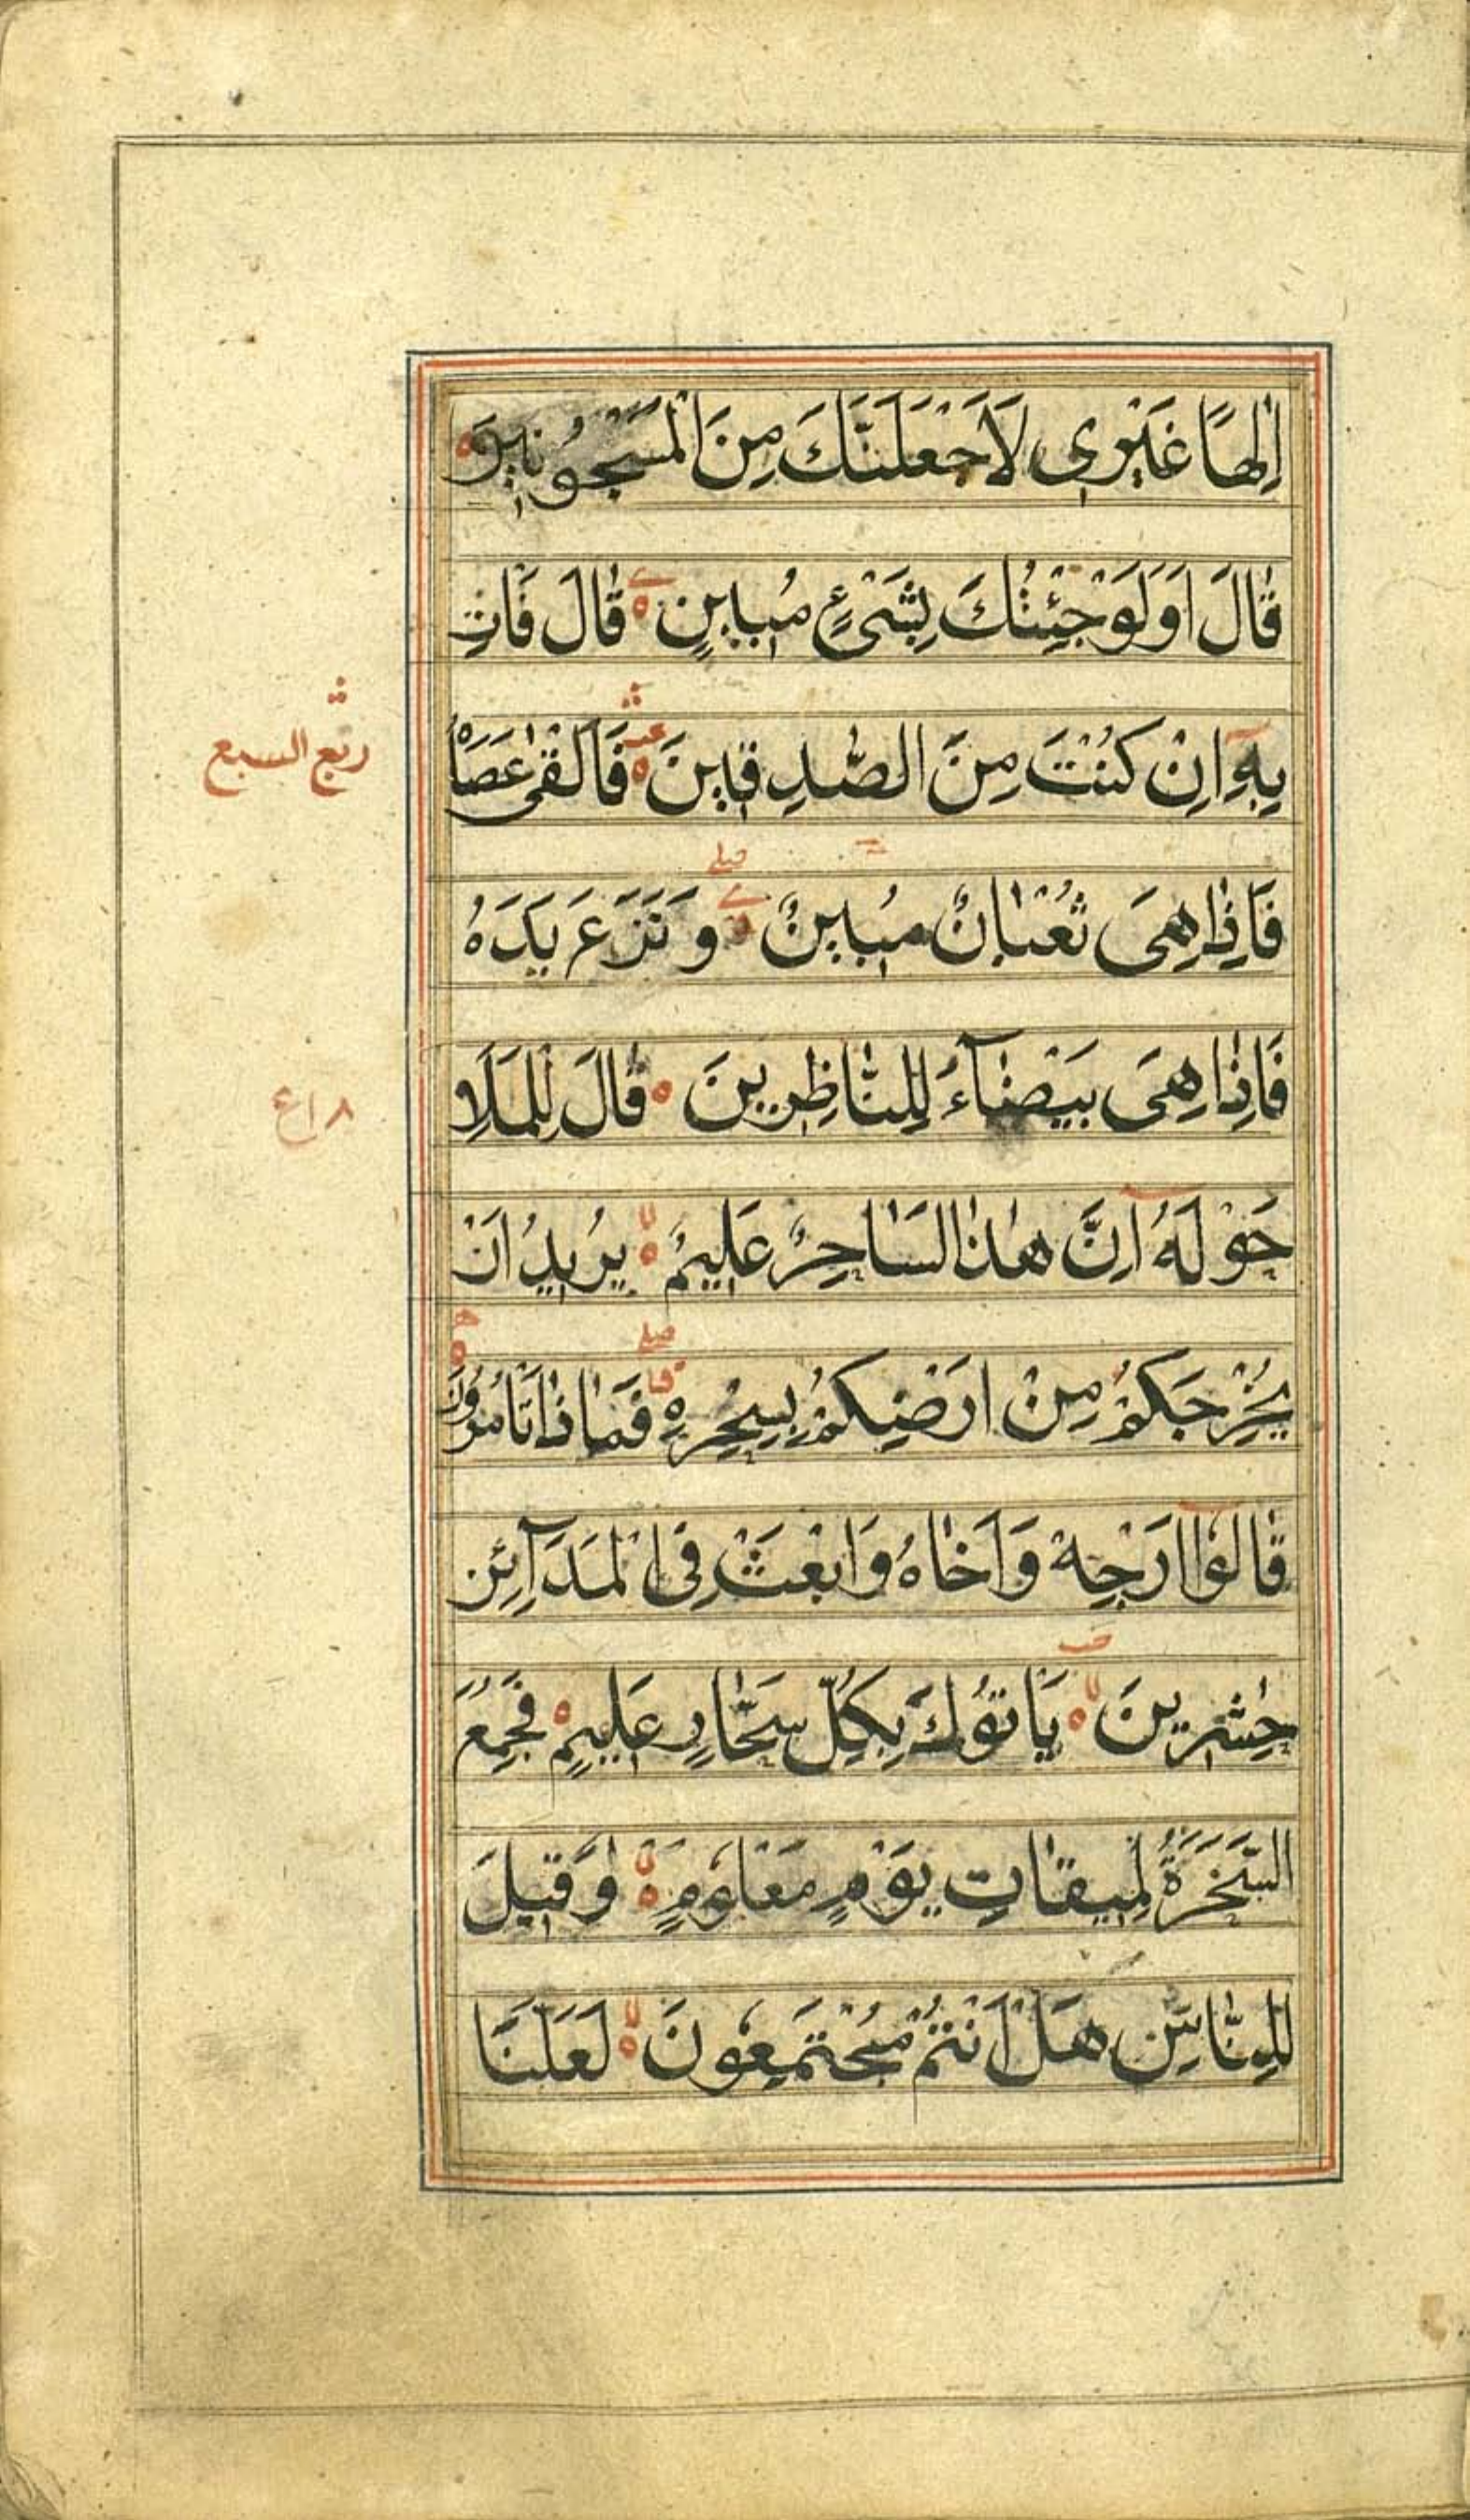 اِلٰهًا غَيْرِي لَاَجْعَلَنَّكَ مِنَ الْمَسْجُوْنِيْنَ
قَالَ اَوَلَوْ جِئْتُكَ بِشَيْءٍ مُبِيْنٍ قَالَ فَاْتِ
بِهٖٓ اِنْ كُنْتَ مِنَ الصّٰدِقِيْنَ فَاَلْقٰى عَصَاهُ
ربع السبع
فَاِذَا هِيَ ثُعْبَانٌ مُبِيْنٌ وَنَزَعَ يَدَهٗ
صلے
فَاِذَا هِيَ بَيْضَآءُ لِلنَّاظِرِيْنَ قَالَ لِلْمَلَاِ
حَوْلَهٗٓ اِنَّ هٰذَا لَسَاحِرٌ عَلِيْمٌ يُرِيْدُ اَنْ
يُخْرِجَكُمْ مِنْ اَرْضِكُمْ بِسِحْرِهٖ فَمَاذَا تَأْمُرُوْنَ
صلے
قَالُوْٓا اَرْجِهْ وَاَخَاهُ وَابْعَثْ فِى الْمَدَآئِنِ
حٰشِرِيْنَ يَأْتُوْكَ بِكُلِّ سَحَّارٍ عَلِيْمٍ فَجُمِعَ
السَّحَرَةُ لِمِيْقَاتِ يَوْمٍ مَعْلُوْمٍ وَقِيْلَ
لِلنَّاسِ هَلْ اَنْتُمْ مُجْتَمِعُوْنَ لَعَلَّنَا